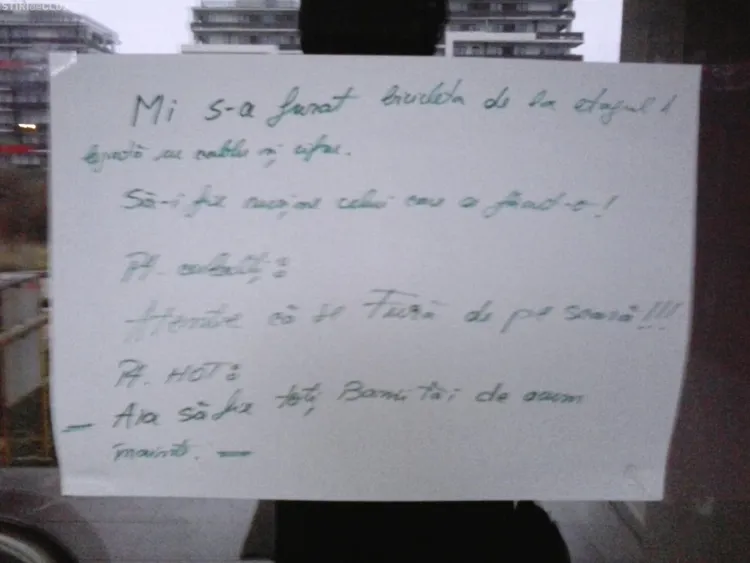 STIRI
Mi s-a furat bicicleta de la etajul 1
legată cu cablu și cifru.
Să-i fie rușine celui care a făcut-o!
Pt. ceilalți:
Atenție că se Fură de pe scară!!!
Pt. HOT:
— Aia să fie toți Banii tăi de acum
înainte. —